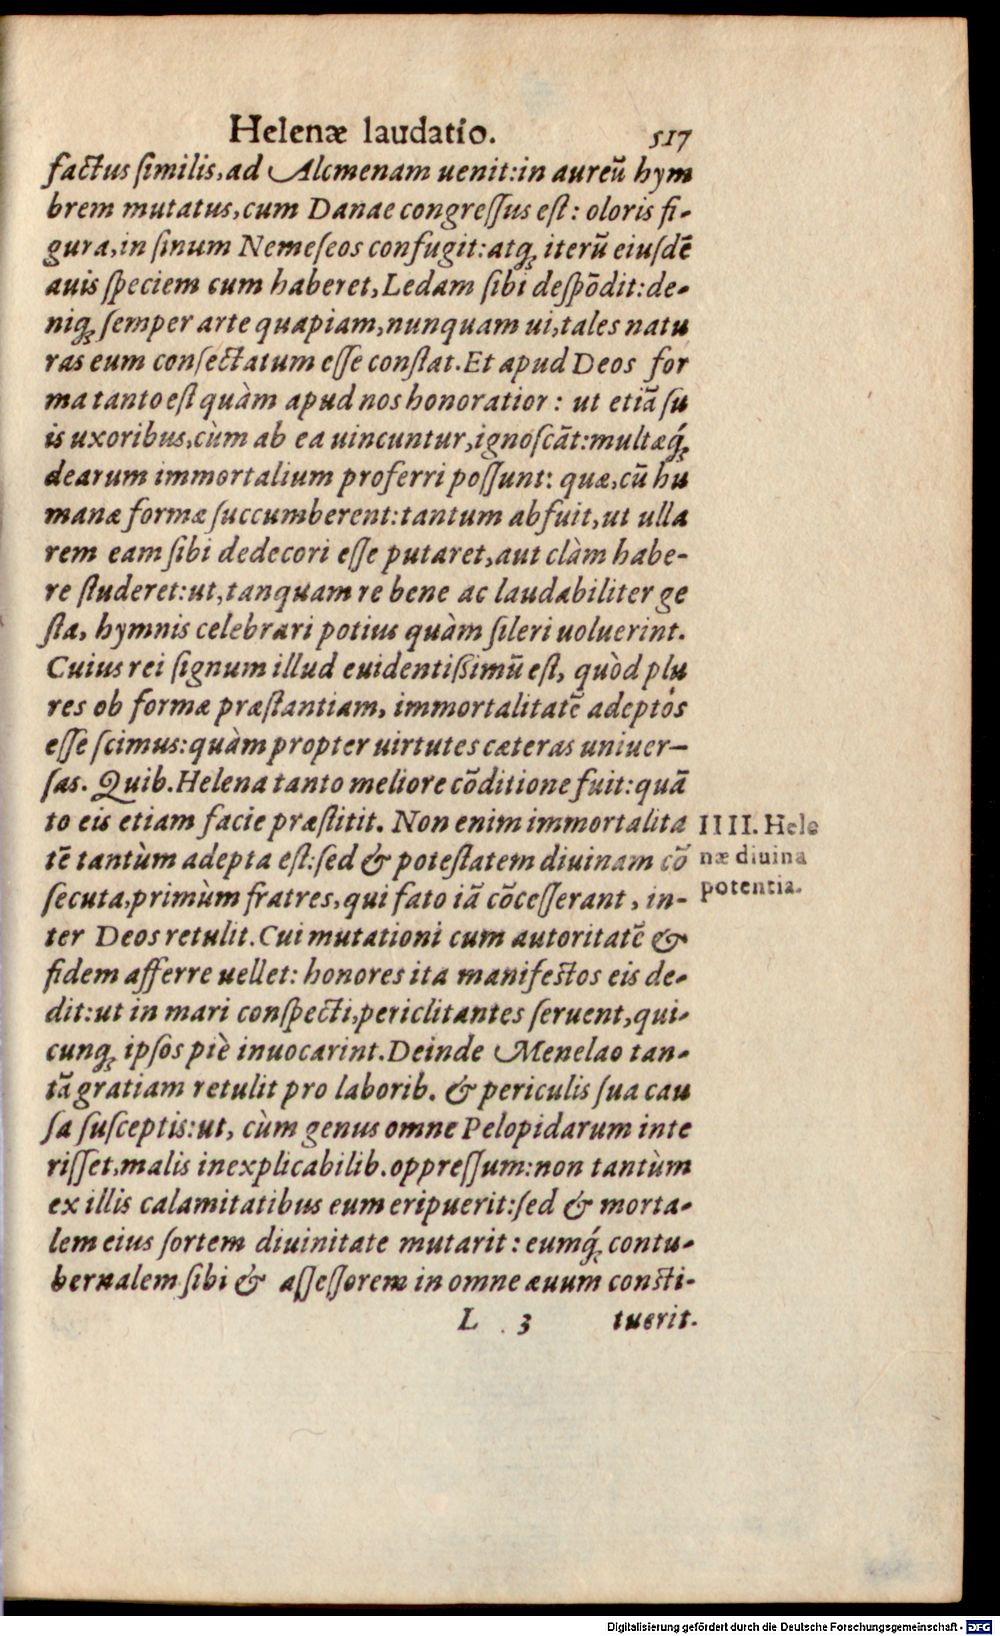 Helenæ laudatio. 517
factus ſimilis, ad Alcmenam uenit: in aureũ hym
brem mutatus, cum Danae congreſſus eſt: oloris fi-
gura, in ſinum Nemeſeos confugit: atq́; iterũ eiuſdẽ
auis ſpeciem cum haberet, Ledam ſibi deſpõdit: de-
niq; ſemper arte quapiam, nunquam ui, tales natu
ras eum conſectatum eſſe conſtat. Et apud Deos for
ma tanto eſt quàm apud nos honoratior: ut etiã ſu
is uxoribus, cùm ab ea uincuntur, ignoſcãt: multæq́;
dearum immortalium proferri poſſunt: quæ, cũ hu
manæ formæ ſuccumberent: tantum abfuit, ut ulla
rem eam ſibi dedecori eſſe putaret, aut clàm habe-
re ſtuderet: ut, tanquam re bene ac laudabiliter ge
ſta, hymnis celebrari potius quàm ſileri uoluerint.
Cuius rei ſignum illud euidentiſsimũ eſt, quòd plu
res ob formæ præſtantiam, immortalitatẽ adeptos
eſſe ſcimus: quàm propter uirtutes cæteras uniuer-
ſas. Quib. Helena tanto meliore cõditione fuit: quã
to eis etiam facie præſtitit. Non enim immortalita
tẽ tantùm adepta eſt: ſed & poteſtatem diuinam cõ
ſecuta, primùm fratres, qui fato iã cõceſſerant, in-
ter Deos retulit. Cui mutationi cum autoritatẽ &
fidem afferre uellet: honores ita manifeſtos eis de-
dit: ut in mari conſpecti, periclitantes ſeruent, qui-
cunq; ipſos piè inuocarint. Deinde Menelao tan-
tã gratiam retulit pro laborib. & periculis ſua cau
ſa ſuſceptis: ut, cùm genus omne Pelopidarum inte
riſſet, malis inexplicabilib. oppreſſum: non tantùm
ex illis calamitatibus eum eripuerit: ſed & morta-
lem eius ſortem diuinitate mutarit: eumq́; contu-
bernalem ſibi & aſſeſſorem in omne æuum conſti-
L 3 tuerit.
IIII. Hele
næ diuina
potentia.
Digitalisierung gefördert durch die Deutsche Forschungsgemeinschaft - DFG